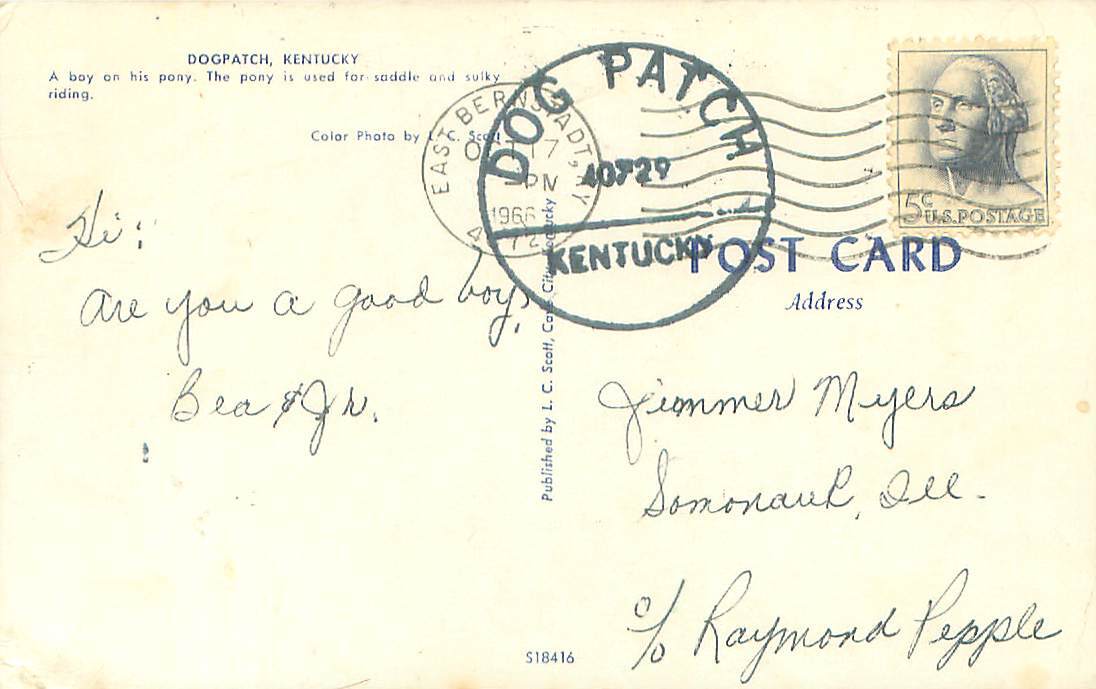 DOGPATCH, KENTUCKY
A boy on his pony. The pony is used for saddle and sulky
riding.
Color Photo by L. C. Scott
EAST BERNSTADT, KY
17
PM
1966
DOG PATCH
40729
KENTUCKY
5c
U.S. POSTAGE
POST CARD
Address
Hi:
Are you a good boy.
Bea & Jr.
Published by L. C. Scott, Cave City, Kentucky
Jimmer Myers
Somonauk, Ill.
c/o Raymond Pepple
S18416